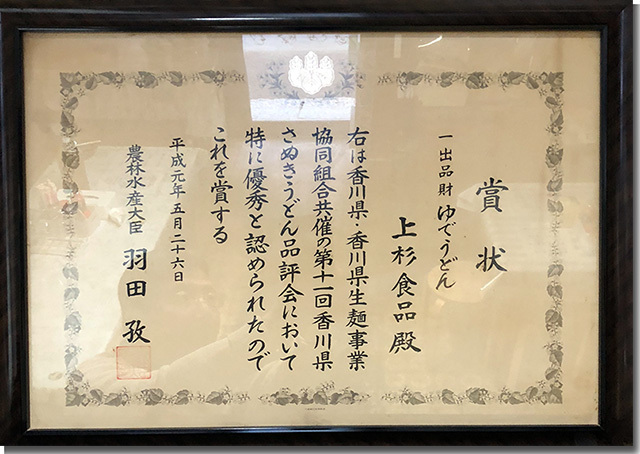 賞状
一出品財 ゆでうどん
上杉食品殿
右は香川県・香川県生麺事業
協同組合共催の第十一回香川県
さぬきうどん品評会において
特に優秀と認められたので
これを賞する
平成元年五月二十六日
農林水産大臣 羽田孜